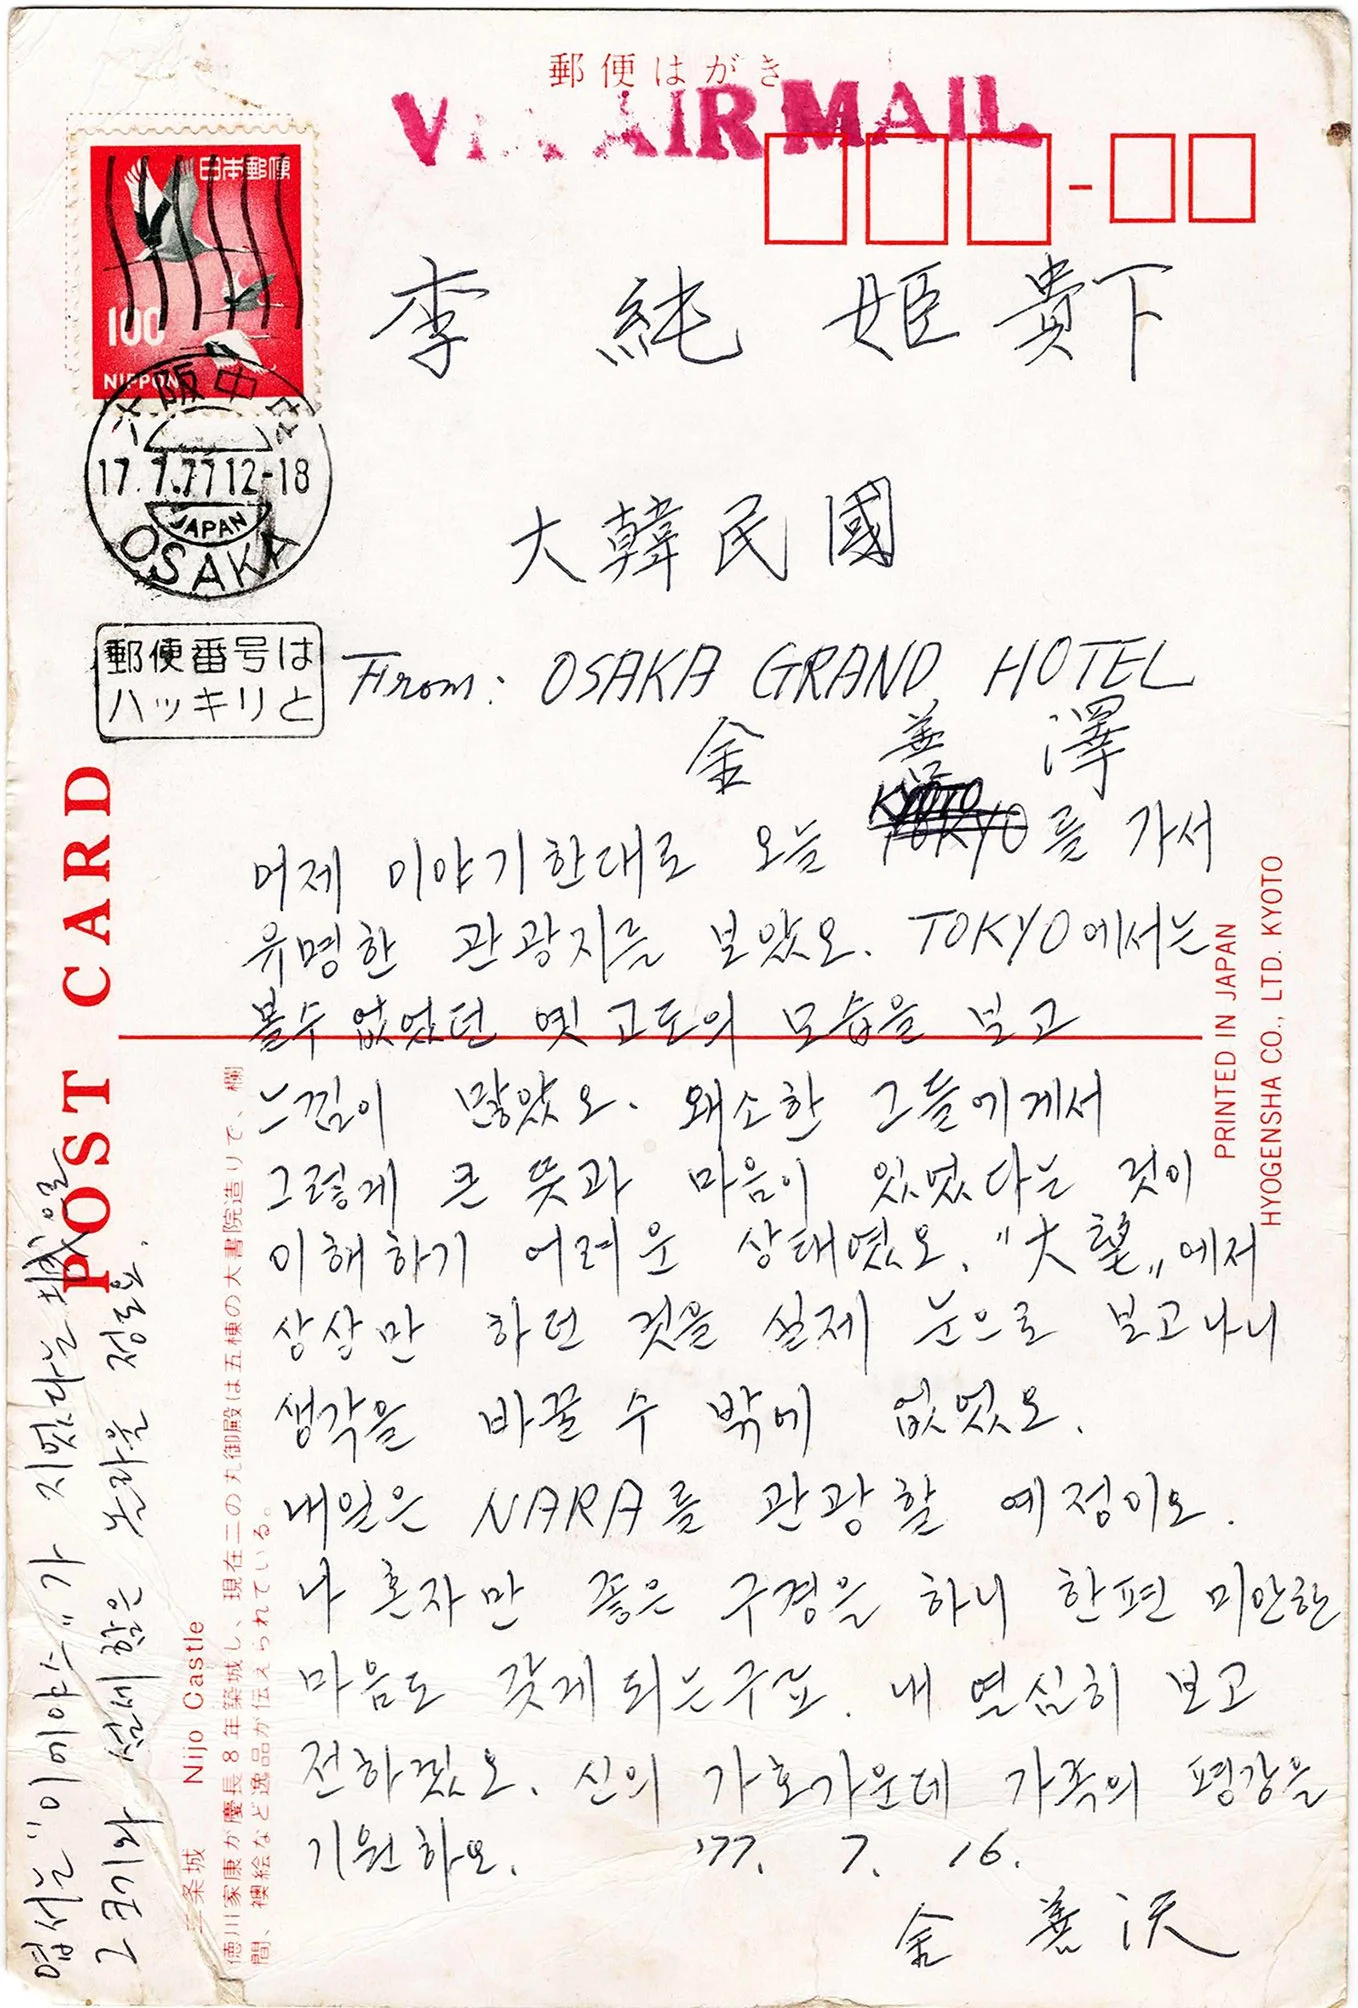 郵便はがき
VIA AIR MAIL
日本郵便
100
NIPPON
大阪中央
17.7.77 12-18
JAPAN
OSAKA
郵便番号は
ハッキリと
李 純 姬 貴下
大韓民國
From: OSAKA GRAND HOTEL
金 善 澤
어제 이야기한대로 오늘 KYOTO를 가서
유명한 관광지를 보았오. TOKYO에서는
볼수 없었던 옛 고도의 모습을 보고
느낌이 많았오. 왜소한 그들에게서
그렇게 큰 뜻과 마음이 있었다는 것이
이해하기 어려운 상태였오. "大望"에서
상상만 하던 것을 실제 눈으로 보고나니
생각을 바꿀 수 밖에 없었오.
내일은 NARA를 관광할 예정이오.
나 혼자만 좋은 구경을 하니 한편 미안한
마음도 갖게 되는구료. 내 열심히 보고
전하겠오. 신의 가호가운데 가족의 평강을
기원하오. '77. 7. 16.
金 善 沢
엽서는 "이에야스"가 지었다는 城을
그 크기와 섬세함은 놀라울 정도요.
POST CARD
二条城 Nijo Castle
徳川家康が慶長8年築城し、現在二の丸御殿は五棟の大書院造りで、欄
間、襖絵など逸品が伝えられている。
PRINTED IN JAPAN
HYOGENSHA CO., LTD. KYOTO